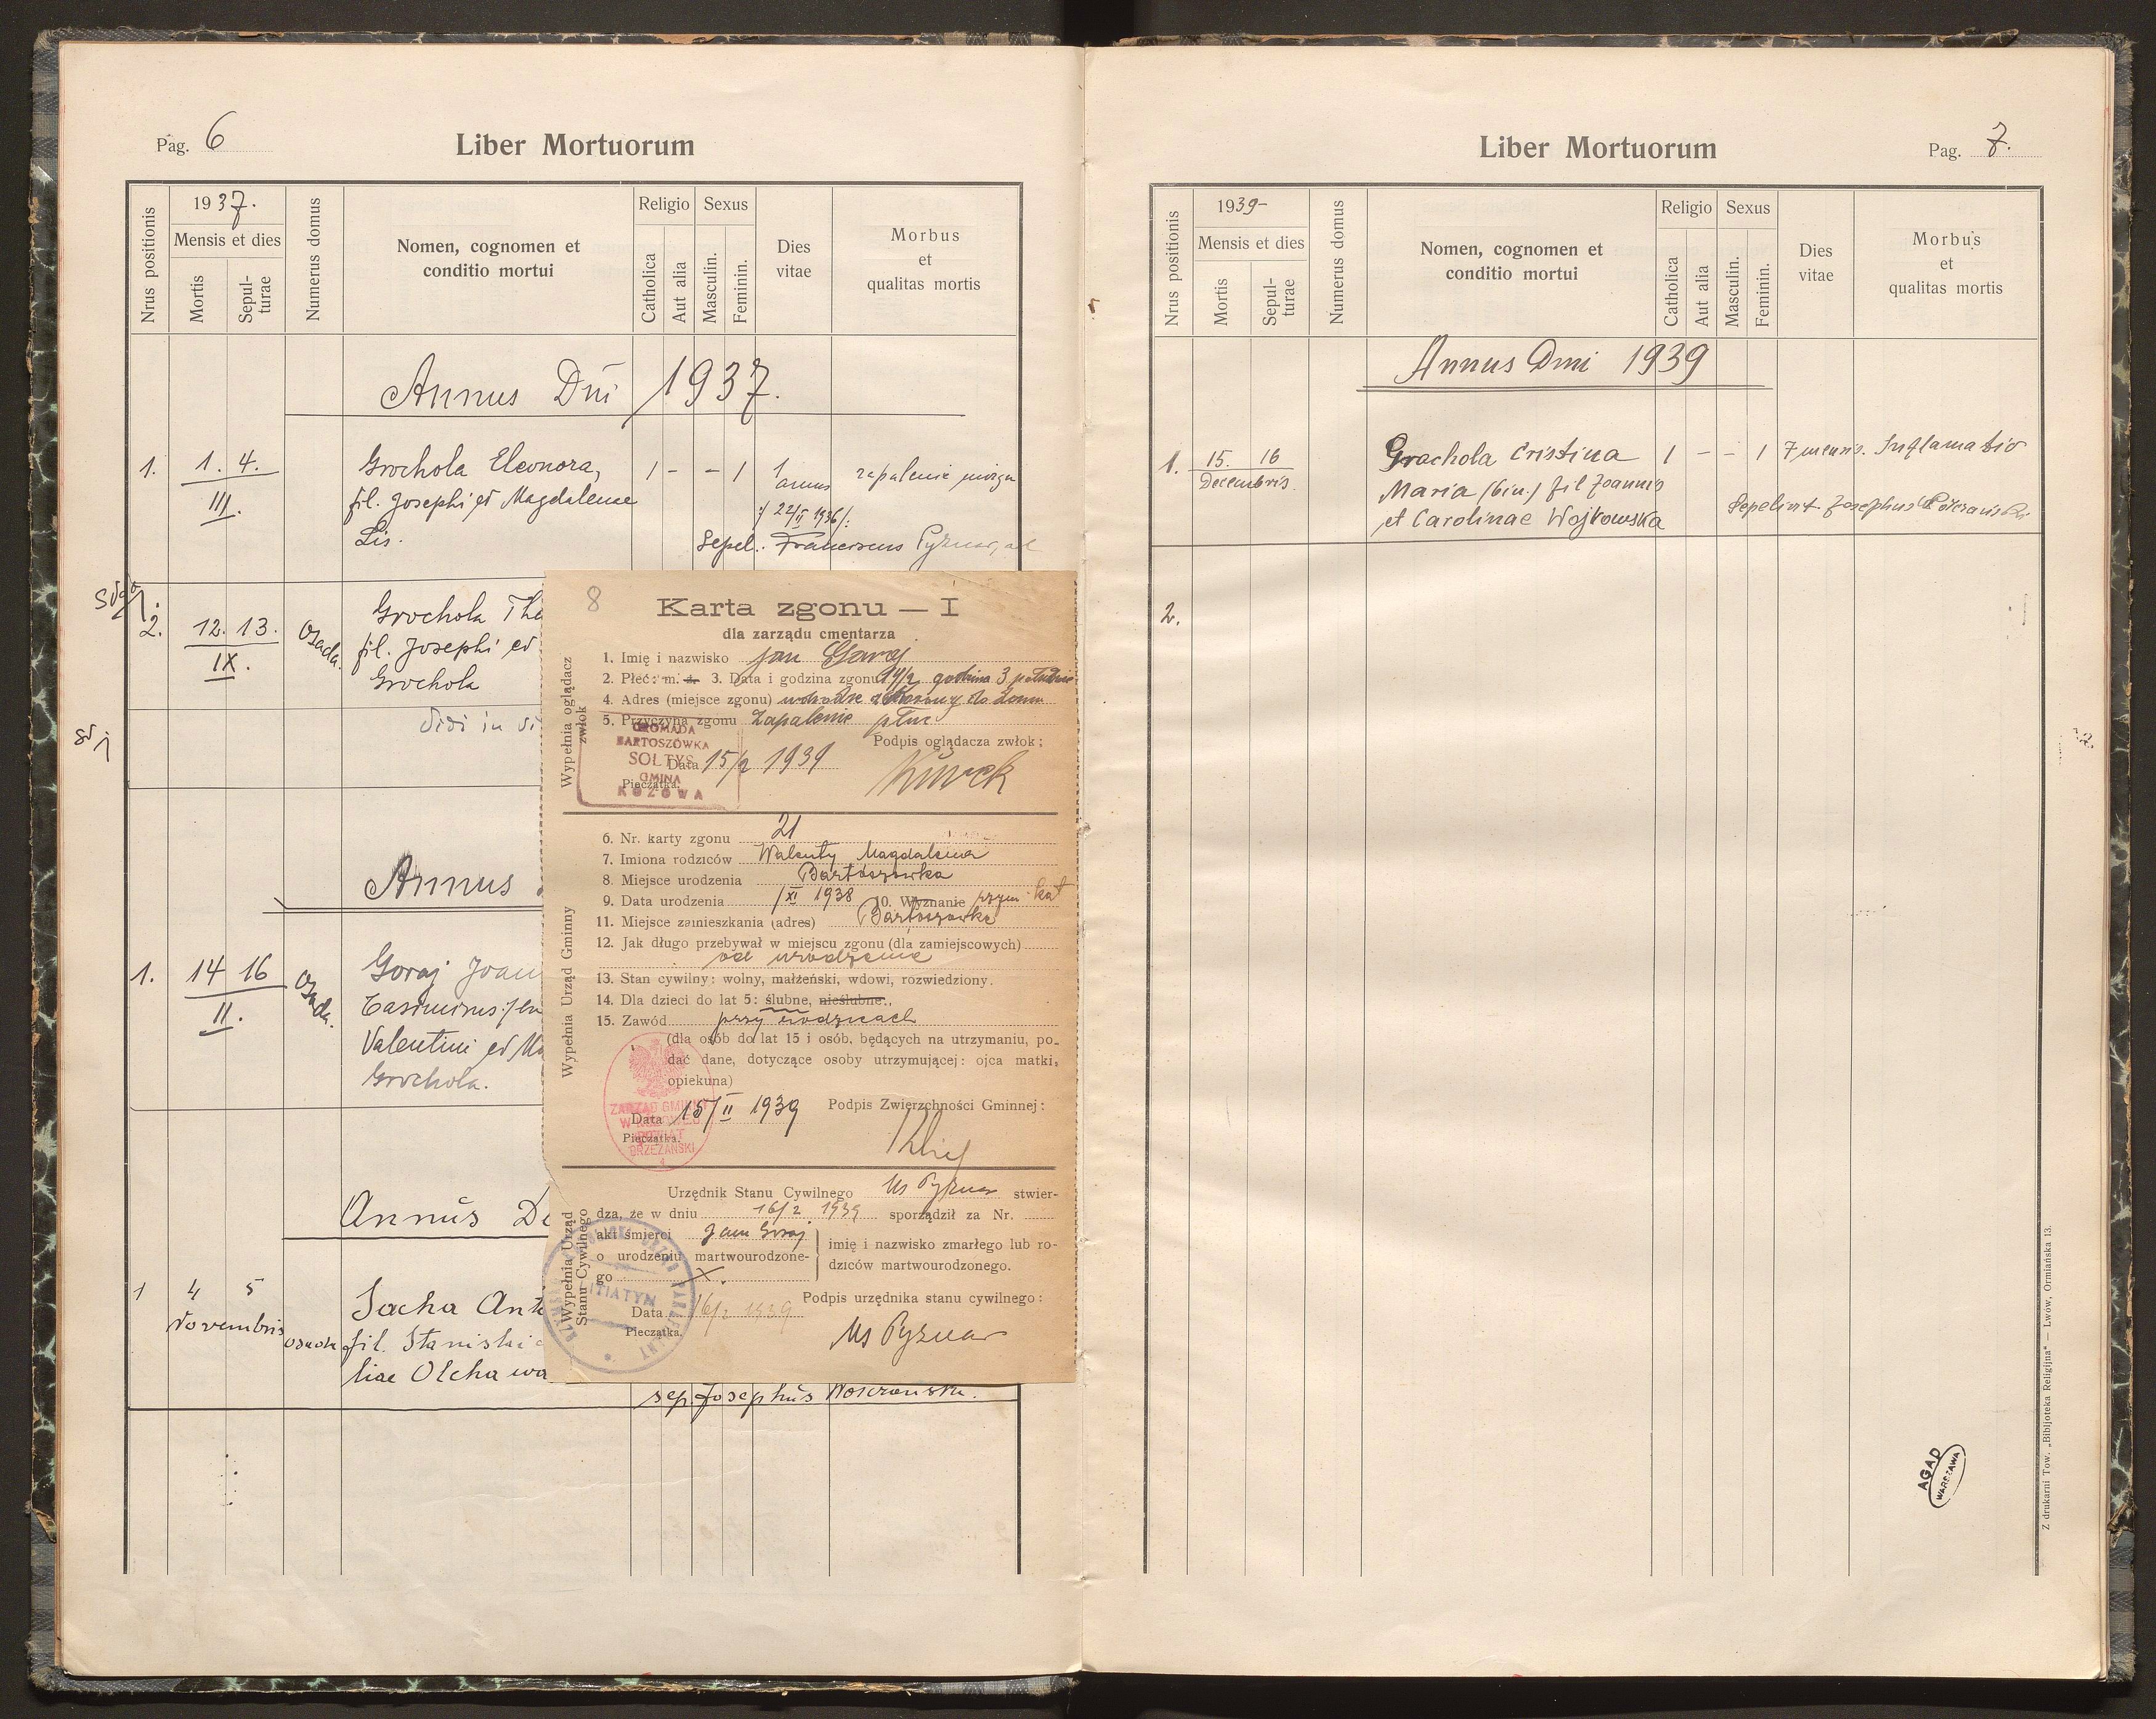 Pag. 6
Liber Mortuorum
Nrus positionis
1937.
Mensis et dies
Mortis
Sepul-
turae
Numerus domus
Nomen, cognomen et
conditio mortui
Religio
Catholica
Aut alia
Sexus
Masculin.
Feminin.
Dies
vitae
Morbus
et
qualitas mortis
Annus Dni 1937.
1. 1. 4. Grochola Eleonora, 1 - - 1 1 zapalenie mózgu
annus
III. fil. Josephi et Magdalenae
22/II 1936
Lis. Sepel. Franciscus Pyznar
2. 12. 13. Osada Grochola
IX. fil. Josephi et
Grochola
Vidi in
Annus
1. 14 16 Osada. Goraj Joan
II. Casimirus
Valentini et Ma
Grochola.
Annus
1 4 5 Sacha Ant
Novembris
Osada fil. Stanislai
liae Olchawa
sep. Josephus
8
Karta zgonu — I
dla zarządu cmentarza
Wypełnia oglądacz
zwłok
1. Imię i nazwisko Jan Goraj
2. Płeć: m. ż. 3. Data i godzina zgonu 14/2 godzina 3
4. Adres (miejsce zgonu) do domu
5. Przyczyna zgonu Zapalenie płuc
GROMADA
BARTOSZÓWKA
SOŁTYS
GMINA
KOZOWA
Podpis oglądacza zwłok:
Data 15/2 1939
Pieczątka.
Wypełnia Urząd Gminny
6. Nr. karty zgonu 21
7. Imiona rodziców Walenty Magdalena
8. Miejsce urodzenia Bartoszówka
9. Data urodzenia 1/XI 1938 10. Wyznanie rzym-kat
11. Miejsce zamieszkania (adres) Bartoszówka
12. Jak długo przebywał w miejscu zgonu (dla zamiejscowych)
od urodzenia
13. Stan cywilny: wolny, małżeński, wdowi, rozwiedziony.
14. Dla dzieci do lat 5: ślubne, nieślubne.,
15. Zawód przy rodzicach
(dla osób do lat 15 i osób, będących na utrzymaniu, po-
dać dane, dotyczące osoby utrzymującej: ojca matki,
opiekuna)
Data 15/II 1939 Podpis Zwierzchności Gminnej:
Pieczątka.
ZARZĄD GMINY
POWIAT
BRZEŻAŃSKI
Wypełnia Urząd
Stanu Cywilnego
Urzędnik Stanu Cywilnego Ks Pyznar stwier-
dza, że w dniu 16/2 1939 sporządził za Nr.
akt śmierci Jan Goraj imię i nazwisko zmarłego lub ro-
o urodzeniu martwourodzone- dziców martwourodzonego.
go
Podpis urzędnika stanu cywilnego:
Data 16/2 1939
Pieczątka.
Ks Pyznar
Liber Mortuorum
Pag. 7.
Nrus positionis
1939-
Mensis et dies
Mortis
Sepul-
turae
Numerus domus
Nomen, cognomen et
conditio mortui
Religio
Catholica
Aut alia
Sexus
Masculin.
Feminin.
Dies
vitae
Morbus
et
qualitas mortis
Annus Dmni 1939
1. 15. 16 Grochola Cristina 1 - - 1 7 mensis. Inflamatio
Decembris. Maria (bin.) fil Joannis
Sepelivit Josephus
et Carolinae Wojkowska
2.
AGAD
WARSZAWA
Z drukarni Tow. „Bibljoteka Religijna" — Lwów, Ormiańska 13.